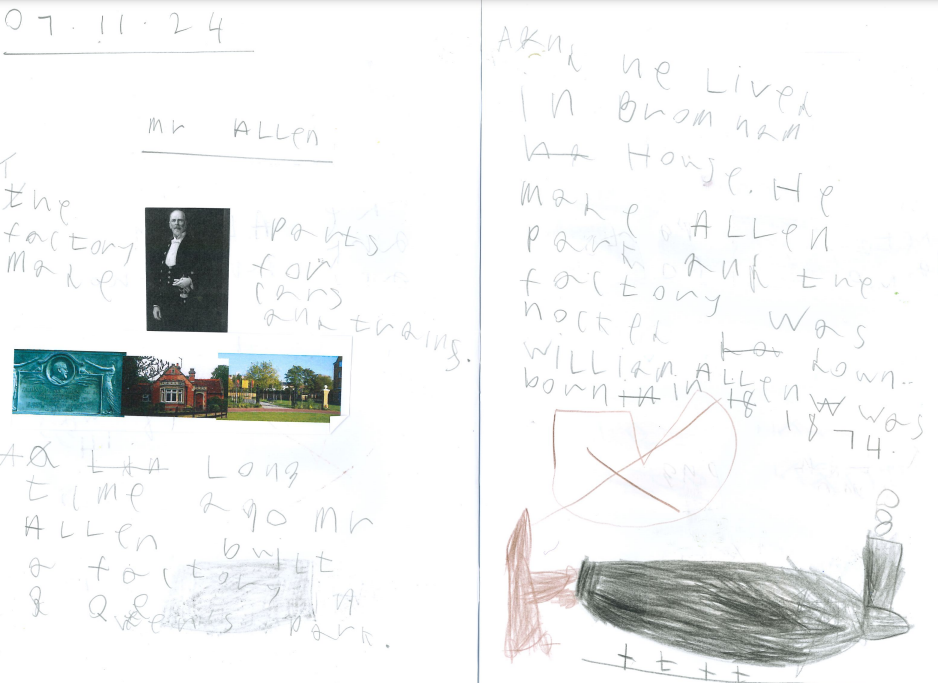 07.11.24
mr ALLen
The
factory
made
parts
for
cars
and trains.
A Long
time ago mr
ALLen built
a factory
Queen's park.
And he Lived
in Bromham
House. He
made ALLen
park and the
factory was
nocked down.
WILLiam ALLen was
born in 1874.